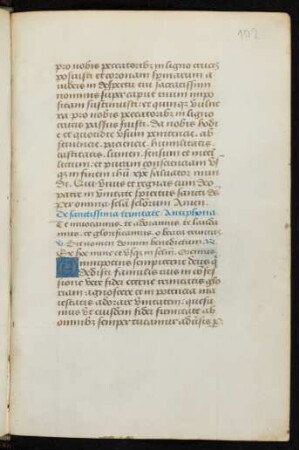 102
pro nobis peccatoribus in ligno crucis
posuisti et coronam spinarum a
iudeis in despectu tui sacratissimi
nominis super caput tuum impo
sitam sustinuisti et quinque vulne
ra pro nobis peccatoribus in ligno
crucis passus fuisti Da nobis hodie
et quotidie usum penitencie abs
tinencie paciencie humilitatis
castitatis lumen sensum et intel
lectum et puram conscientiam vs
que in finem ihu xpe saluator mun
di Qui viuis et regnas cum deo
patre in vnitate spiritus sancti deus
per omnia secula seculorum Amen
De sanctissima trinitate Antiphona
Te inuocamus te adoramus te lauda
mus te glorificamus o beata trinitas
v Sit nomen domini benedictum
Ex hoc nunc et usque in seculum Oremus
Omnipotens sempiterne deus qui
dedisti famulis tuis in confes
sione vere fidei eterne trinitatis glo
riam agnoscere et in potencia ma
iestatis adorare vnitatem quesu
mus vt eiusdem fidei firmitate ab
omnibus semper muniamur aduersis